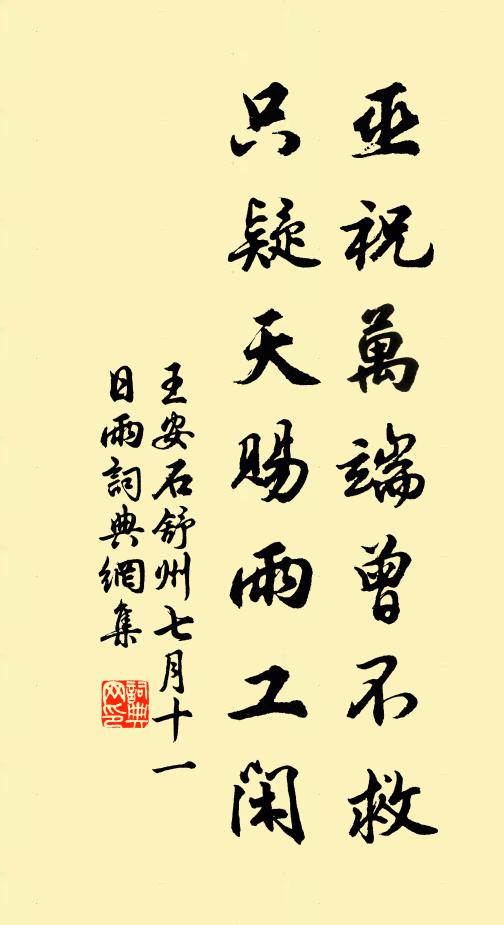 巫祝萬端曾不救
只疑天賜雨工閑
王安石舒州七月十一
日雨詞典網集
詞典
网印